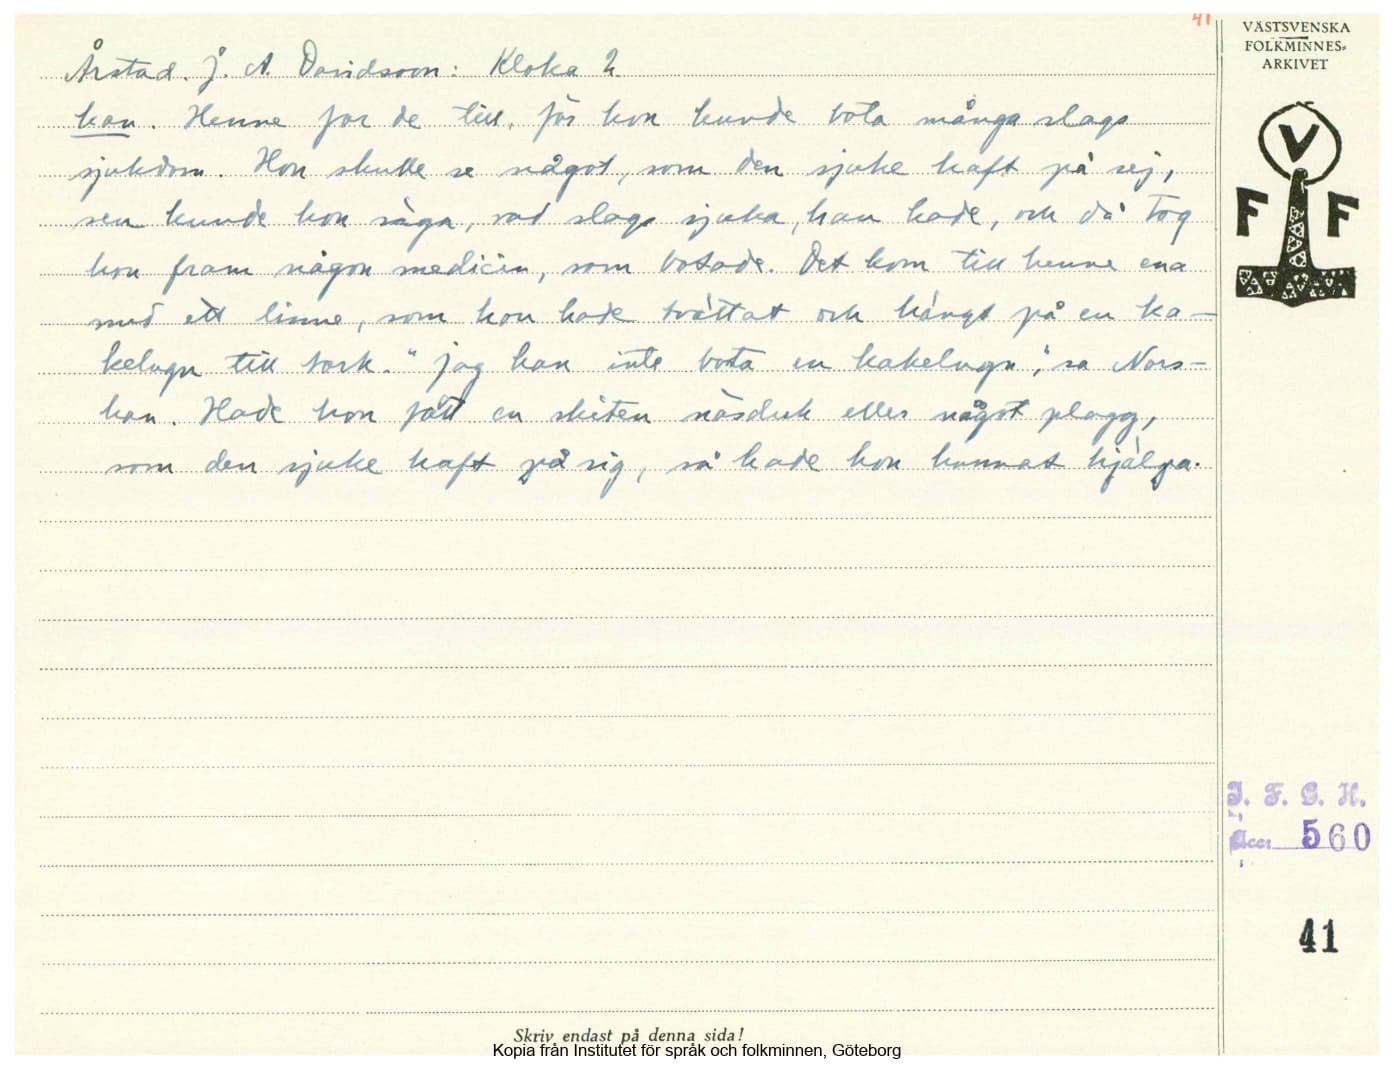 41
VÄSTSVENSKA
FOLKMINNES-
ARKIVET
V
F F
Årstad. J. A. Davidsson: Kloka 2.
kan. Henne for de till, för hon kunde bota många slags
sjukdom. Hon skulle se något, som den sjuke haft på sej,
sen kunde hon säga, vad slags sjuka, han hade, och då tog
hon fram någon medicin, som botade. Det kom till henne ena
med ett linne, som hon hade tvättat och hängt på en ka-
kelugn till tork. "Jag kan inte bota en kakelugn", sa Nors-
kan. Hade hon fått en skiten näsduk eller något plagg,
som den sjuke haft på sig, så hade hon kunnat hjälpa.
I. F. G. H.
Acc: 560
41
Skriv endast på denna sida!
Kopia från Institutet för språk och folkminnen, Göteborg